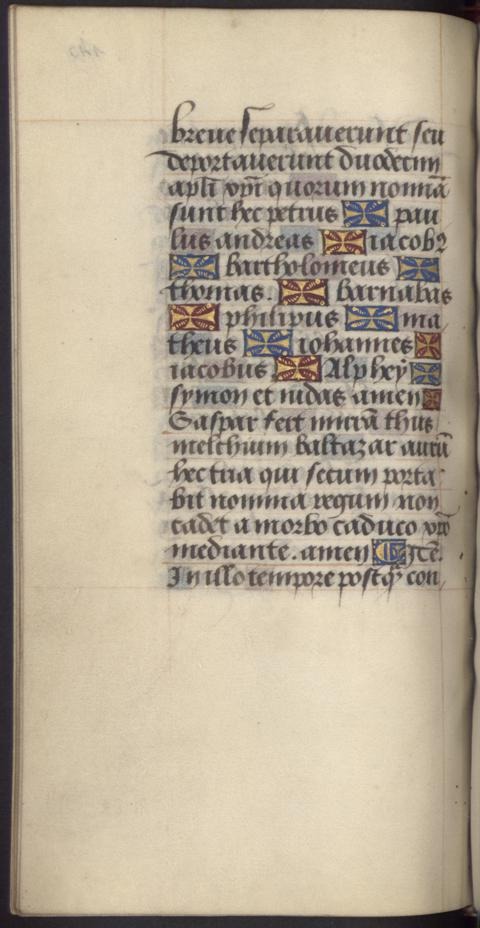 breue separauerunt seu
deportauerunt duodecim
apłi xp̄i quorum nomīa
sunt hec petrus pau
lus andreas iacobꝰ
bartholomeus
thomas. barnabas
philipus ma
theus iohannes
iacobus Alphey
symon et iudas amen
Gaspar fert mirrā thus
melchium baltazar aurū
hec tria qui secum porta
bit nomina regum non
cadet a morbo caduco xp̄o
mediante. amen
In illo tempore postq̄ con